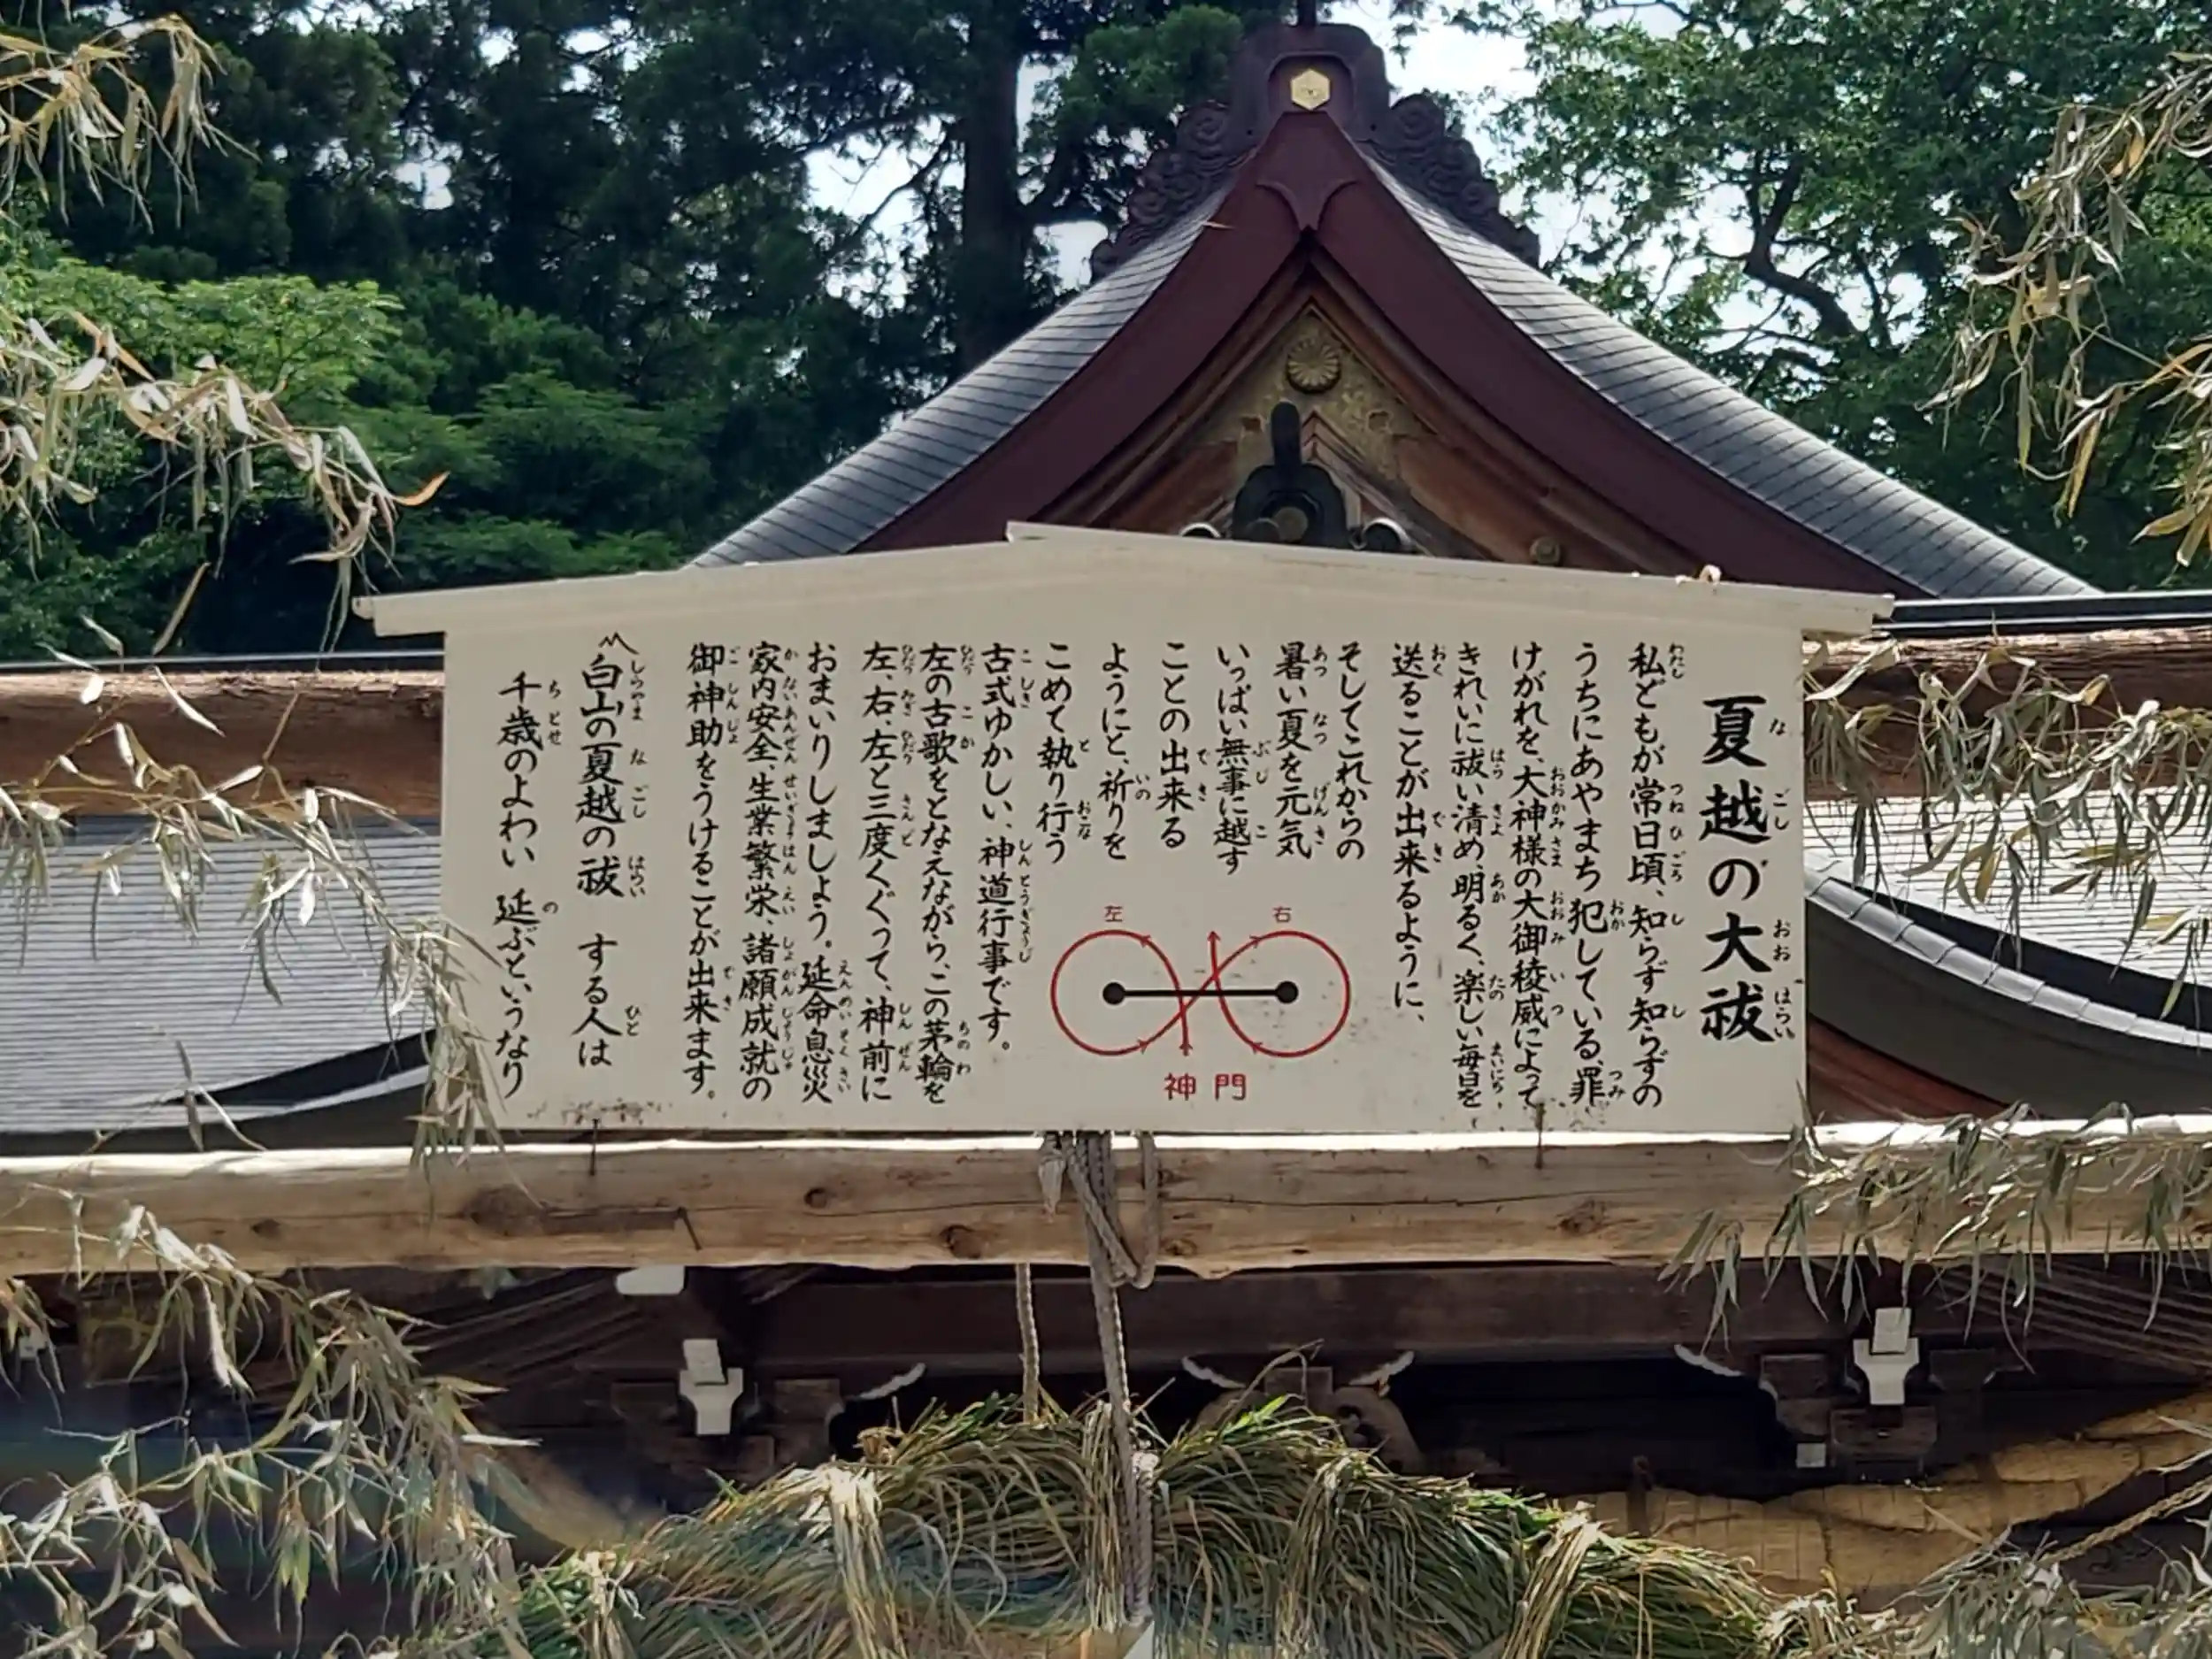 夏越の大祓
私どもが常日頃、知らず知らずの
うちにあやまち犯している、罪
けがれを、大神様の大御稜威によって
きれいに祓い清め、明るく、楽しい毎日を
送ることが出来るように、
そしてこれからの
暑い夏を元気
いっぱい無事に越す
ことの出来る
ようにと、祈りを
こめて執り行う
古式ゆかしい、神道行事です。
左の古歌をとなえながら、この茅輪を
左、右、左と三度くぐって、神前に
おまいりしましょう。延命息災
家内安全、生業繁栄、諸願成就の
御神助をうけることが出来ます。
白山の夏越の祓 する人は
千歳のよわい 延ぶというなり
左
右
神門